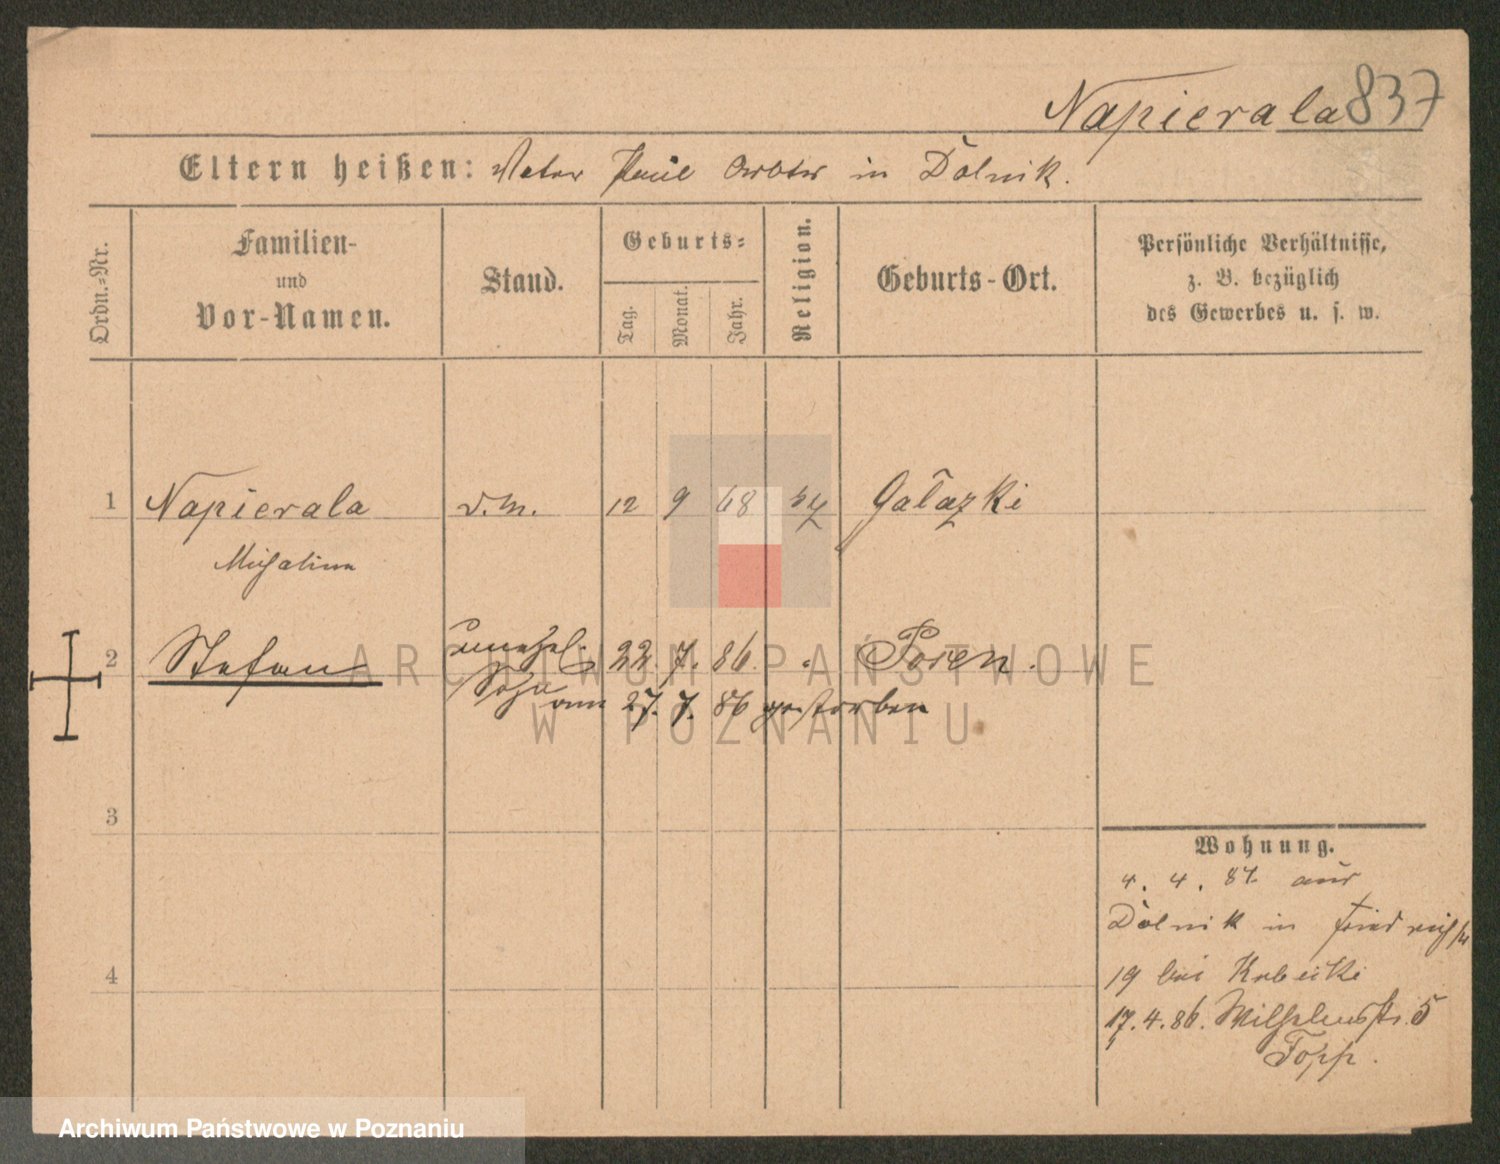 Napierala 837
Eltern heißen: Vater Paul Arbtr in Dolnik.
Ordn.-Nr.
Familien-
und
Vor-Namen.
Stand.
Geburts-
Tag.
Monat.
Jahr.
Religion.
Geburts-Ort.
Persönliche Verhältnisse,
z. B. bezüglich
des Gewerbes u. s. w.
1 Napierala d.m. 12 9 68 Galazki
Michalina
2 Stefan unehel. 22. 7. 86. Posen.
Sohn am 27. 7. 86 gestorben
3
4
Wohnung.
4. 4. 87. aus
Dolnik in Friedrichstr
19 bei
17.4.86. Wilhelmstr. 5
Topp.
ARCHIWUM PAŃSTWOWE
W POZNANIU
Archiwum Państwowe w Poznaniu